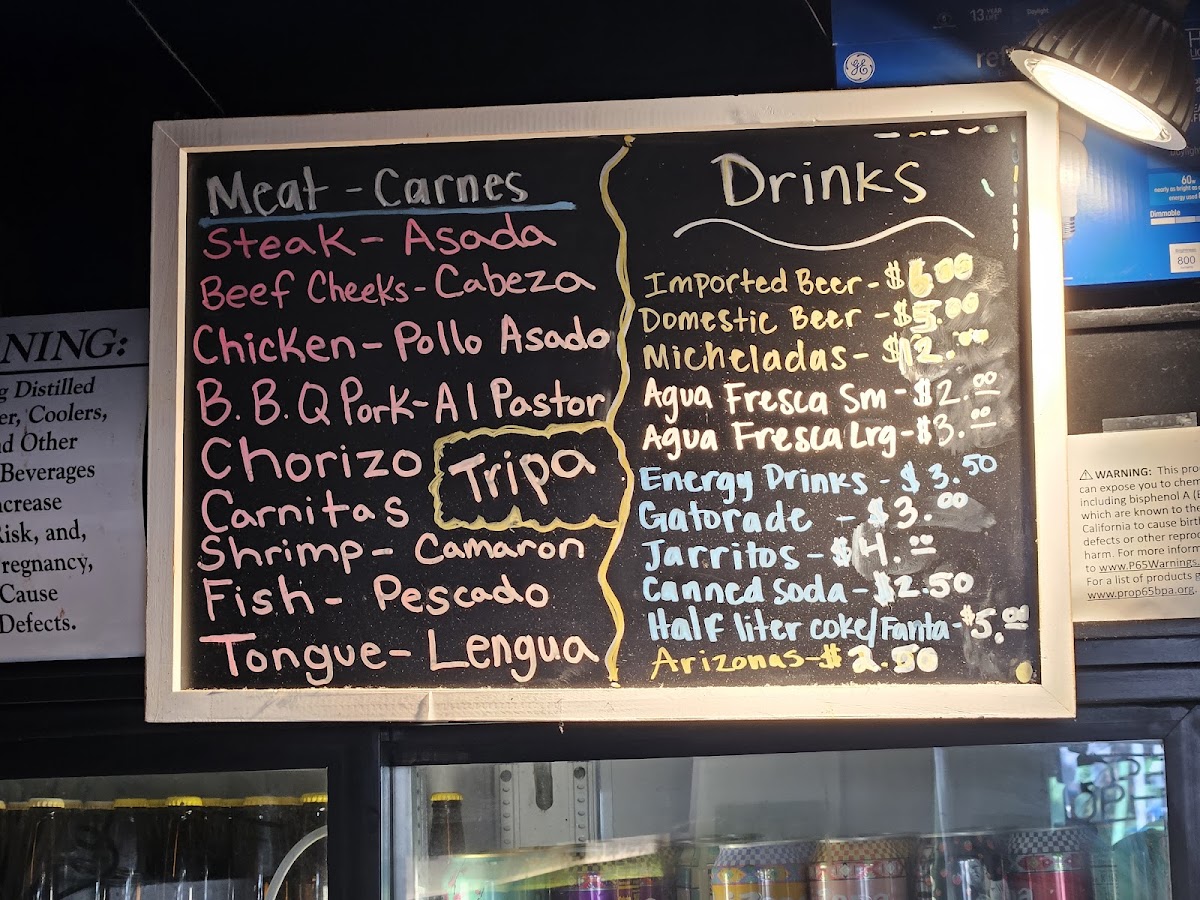 Meat - Carnes
Steak - Asada
Beef Cheeks - Cabeza
Chicken - Pollo Asado
B.B.Q Pork - Al Pastor
Chorizo
Tripa
Carnitas
Shrimp - Camaron
Fish - Pescado
Tongue - Lengua
Drinks
Imported Beer - $6.00
Domestic Beer - $5.00
Micheladas - $12.00
Agua Fresca Sm - $2.00
Agua Fresca Lrg - $3.00
Energy Drinks - $3.50
Gatorade - $3.00
Jarritos - $4.00
Canned Soda - $2.50
Half liter coke/Fanta - $5.00
Arizonas - $2.50
NING:
Distilled
Coolers,
Other
Beverages
Risk, and,
Cause
Defects.
GE
13 YEAR
Daylight
60
nearly as bright as
energy used
Dimmable
800
⚠ WARNING: This
can expose you to
including bisphenol A
which are known to the
California to cause
defects or other
harm. For more
to www.P65Warnings.
For a list of products
www.prop65bpa.org.